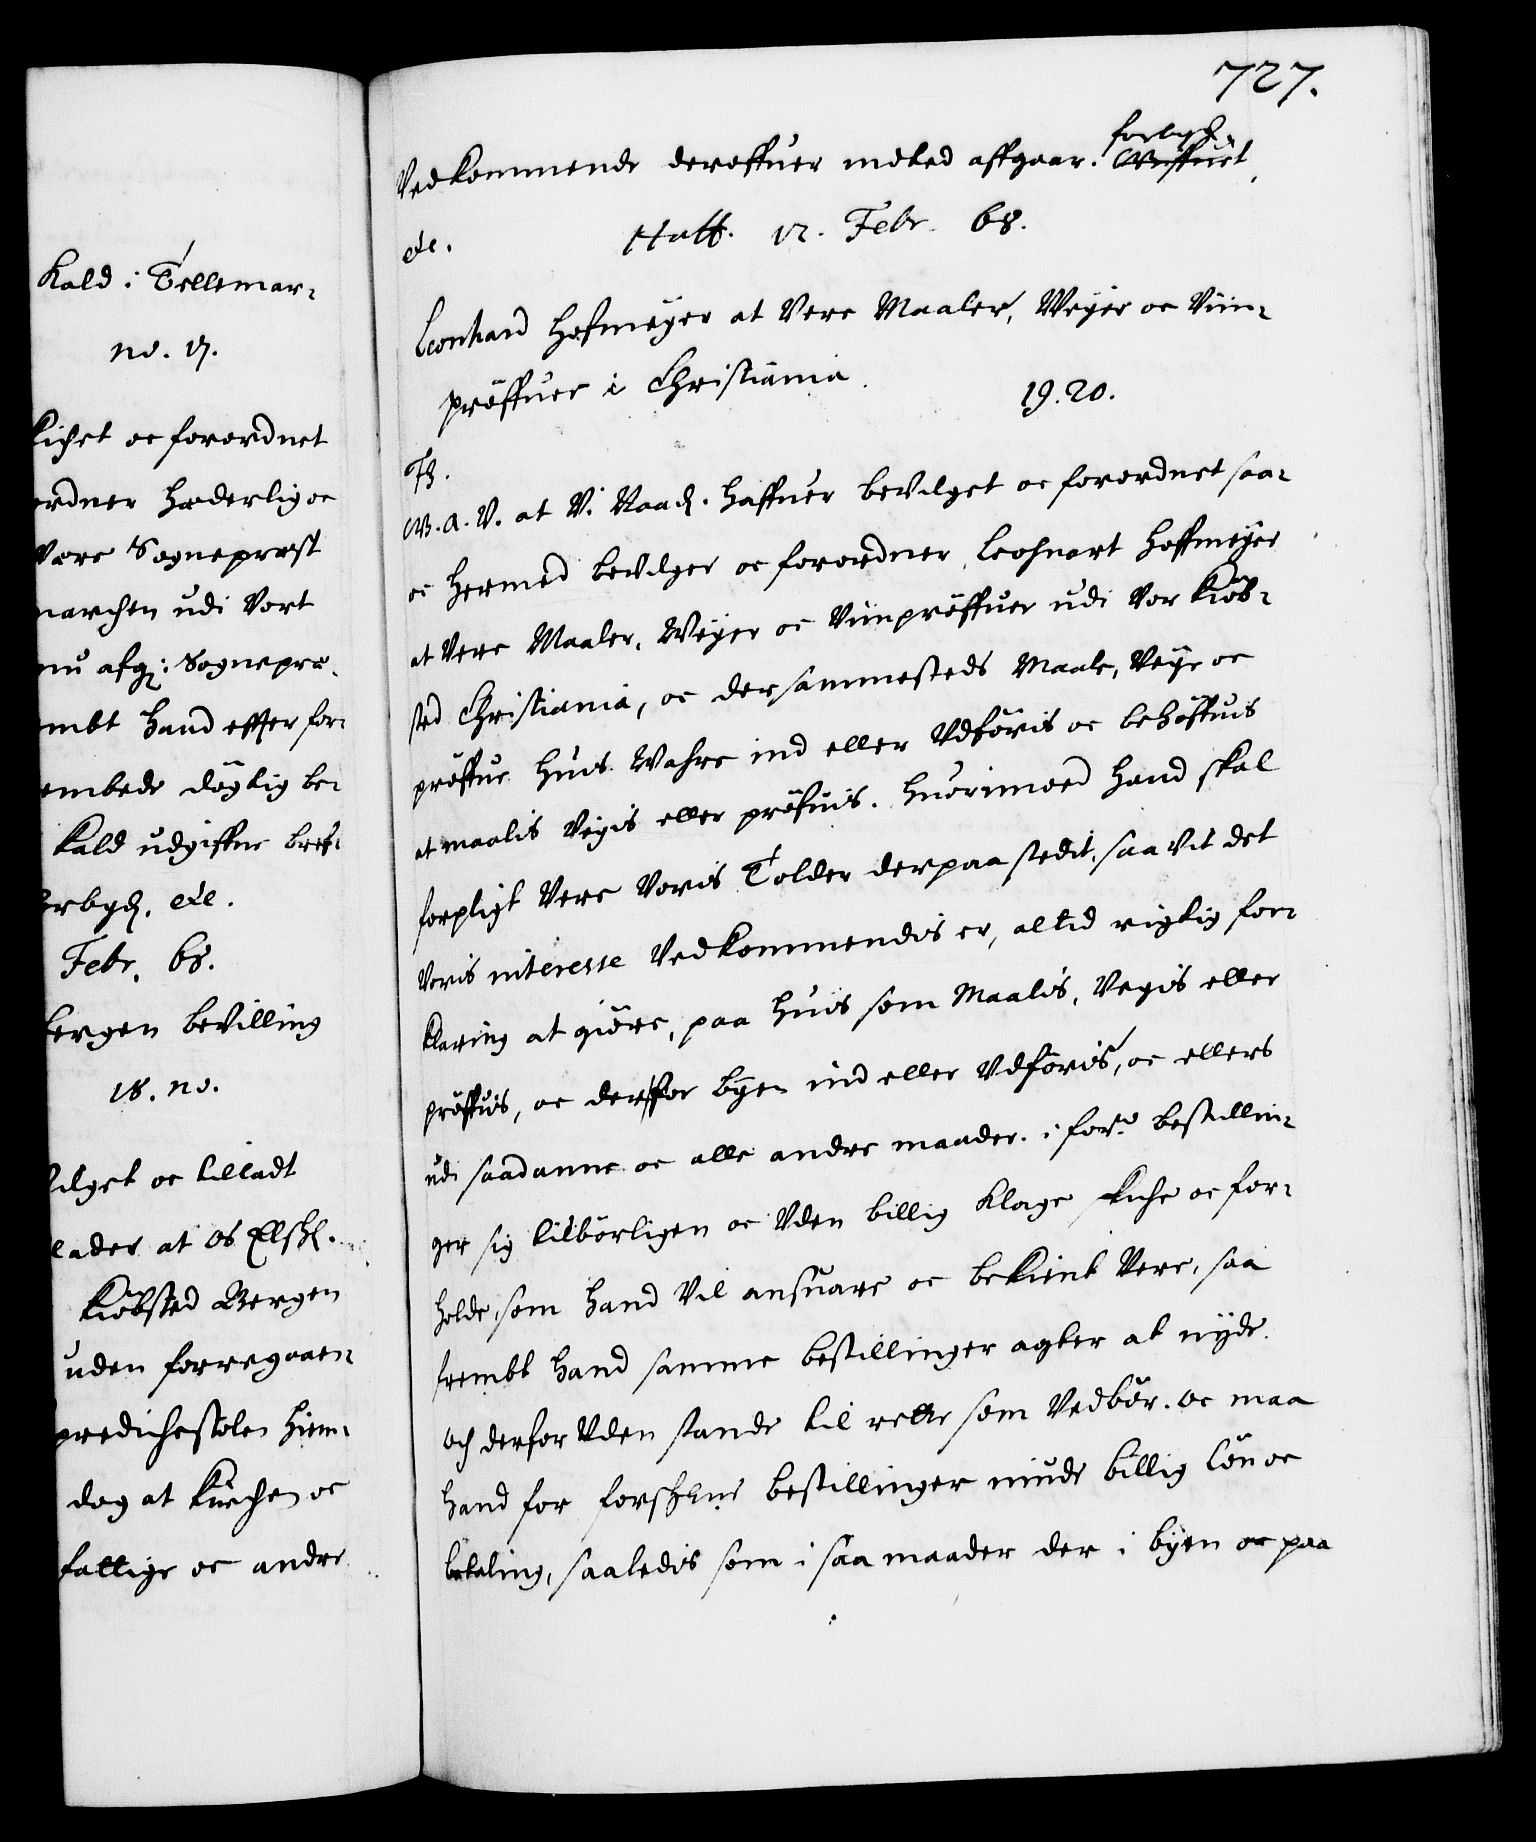 Kald i Tellemar-
no. 17.
kichet oc forordnet
ordner Hæderlig oc
Være Sogneprest
marchen udi Vort
nu afg: Sognepre-
embt hand effter for-
embede döglig be-
Kald udgiffne bref-
orbgd. etc.
Febr. 68.
bergen bevilling
18. no.
vilget oc tilladt
lader at os Elskl.
Kiöbsted Bergen
uden forregaaen-
predichestolen hiem-
dag at Kirchen oc
fattige oc andre
727.
Vedkommende deroffuer indted affgaar. forbyd. Wiffuet
etc. Haff. 12. Febr. 68.
Leonhard Hofmeyer at Vere Maaler, Weyer oc Viin-
pröffuer i Christiania.
19. 20.
F3.
W. A. V. at Vi Naad. Haffuer bevilget oc forordnet saa-
oc hermed bevilger oc forordner Leohnart Hoffmeyer
at Vere Maaler, Weyer oc Viinpröffuer udi Vor Kiöb-
sted Christiania, oc dersammesteds Maale, Veye oc
pröffue huis Wahre ind eller Vdföris oc behöffuis
at maalis Veyis eller pröfuis. Huorimoed hand skal
forpligt Vere Voris Tolder derpaa stedit, saavit det
Voris interesse Vedkommendis er, altid rigtig for-
klaring at giöre, paa huis som Maalis, Vegis eller
pröffuis, oc derfor byen ind eller Vdföris, oc ellers
udi saadanne oc alle andre maader i forne bestillin-
ger sig tilbörligen oc Vden billig Klage skiche oc for-
holde, som hand Vil ansuare oc bekient Vere, saa
frembt hand samme bestillinger agter at nyde.
och derfor Vden stande til rette som Vedbör. oc maa
hand for forschrene bestillinger niude billig Lön oc
betaling, saaledis som i saa maader der i byen oc paa